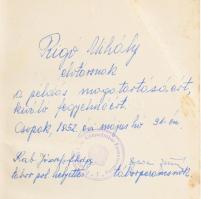 Rigó Mihály
elvtársnak
a példás magatartásáért,
kiváló fegyelméért.
Csopak, 1952. évi május hó 31-én
tábor pol. helyettes táborparancsnok.